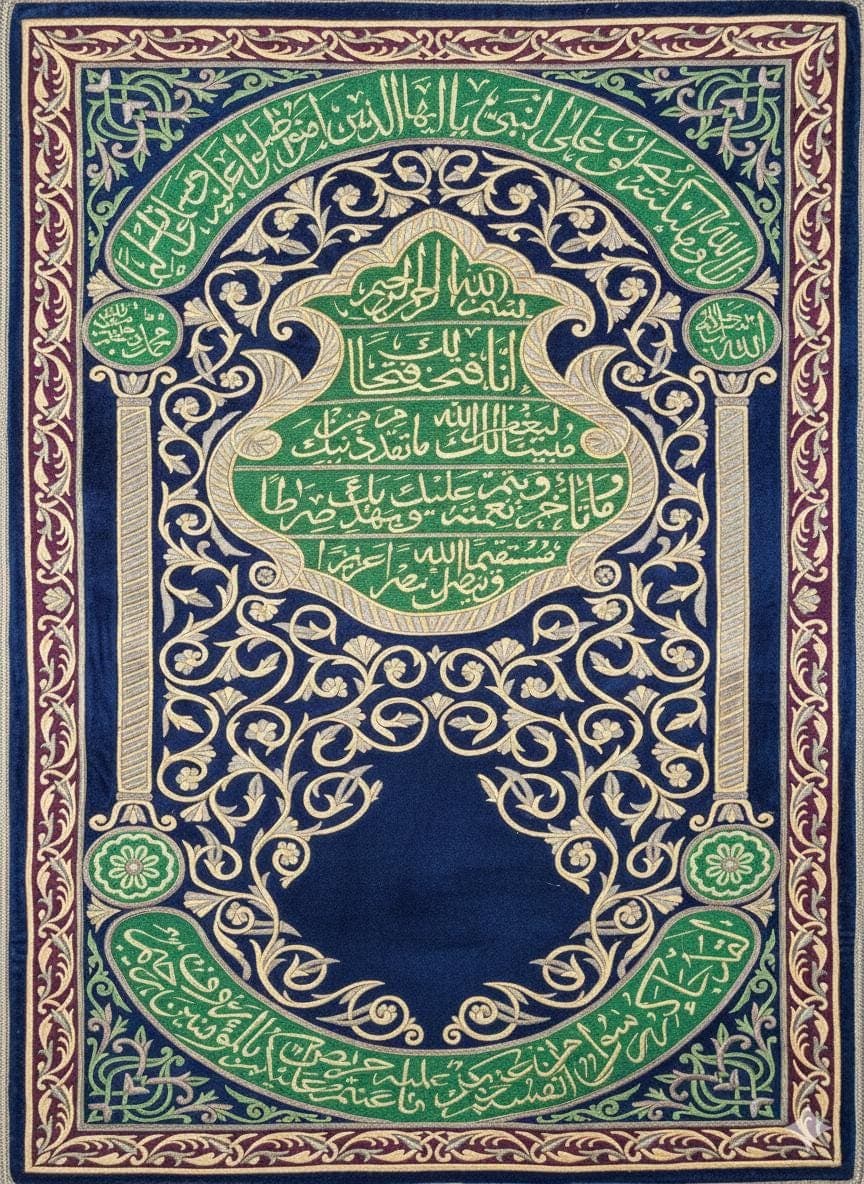 الله وملئكته يصلون على النبي يا ايها الذين امنوا صلوا عليه وسلموا تسليما
الله جل جلاله
محمد
بسم الله الرحمن الرحيم
إنا فتحنا لك فتحا
مبينا ليغفر لك الله ما تقدم من ذنبك
وما تأخر ويتم نعمته عليك ويهديك صراطا
مستقيما وينصرك الله نصرا عزيزا
لقد جاءكم رسول من انفسكم عزيز عليه ما عنتم حريص عليكم بالمؤمنين رؤوف رحيم